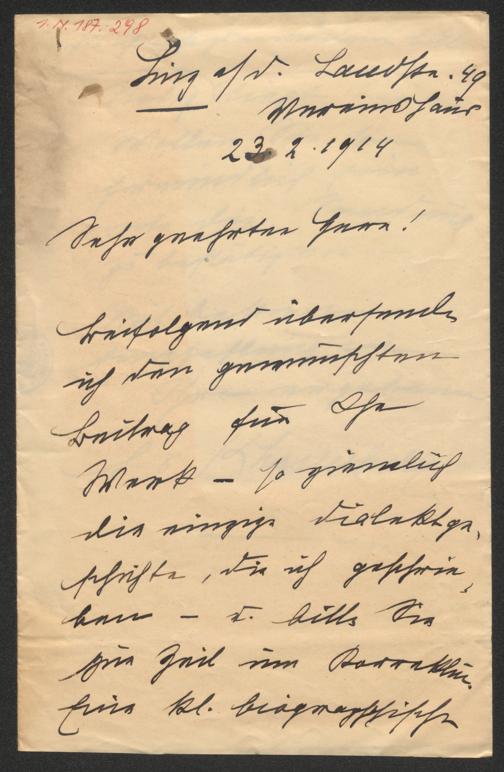 I.N. 187.298
Linz a/d. Landstr. 49
Vereinshaus
23. 2. 1914
Sehr geehrter Herr!
Beifolgend übersende
ich den gewünschten
Beitrag für Ihr
Werk – so ziemlich
die einzige Dialektge-
schichte, die ich geschrie-
ben – u. bitte Sie
zur Zeit um Korrektur.
Eine kl. biographische